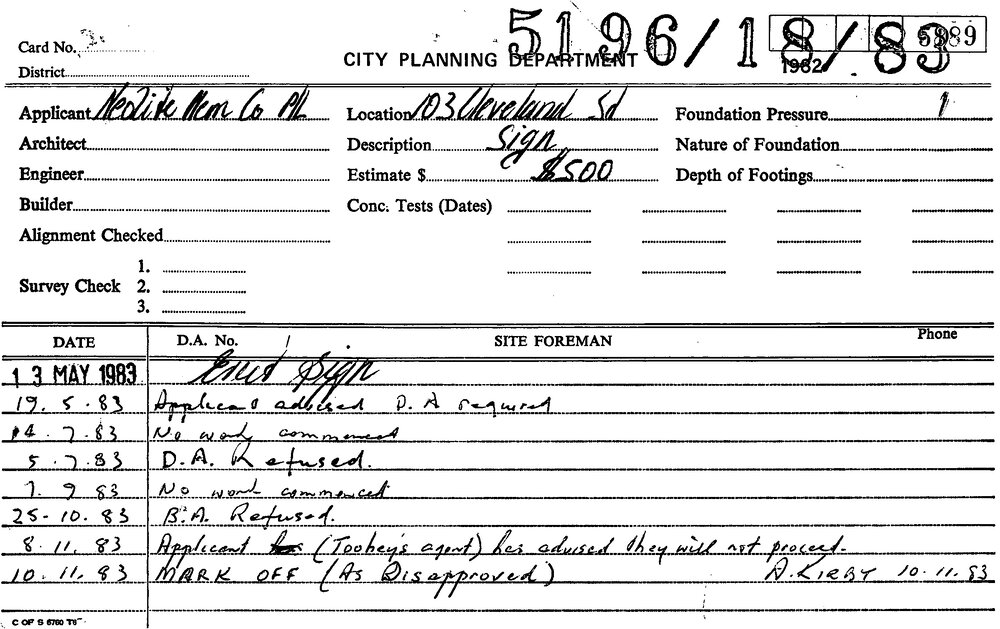 5196/18/83
5989
1982
Card No.
CITY PLANNING DEPARTMENT
District
Applicant Neolite Co PL Location 103 Cleveland Sd Foundation Pressure 1
Architect Description Sign Nature of Foundation
Engineer Estimate $ $500 Depth of Footings
Builder Conc. Tests (Dates)
Alignment Checked
1.
Survey Check 2.
3.
DATE D.A. No. SITE FOREMAN Phone
13 MAY 1983 Erect Sign
19. 5. 83 Applicant advised D.A required
14. 7. 83 No work commenced
5. 7. 83 D.A. Refused.
7. 9 83 No work commenced
25-10. 83 B.A. Refused.
8. 11. 83 Applicant (Toohey's agent) has advised they will not proceed.
10. 11. 83 MARK OFF (As Disapproved) A. KIRBY 10.11.83
C OF S 6760 T6